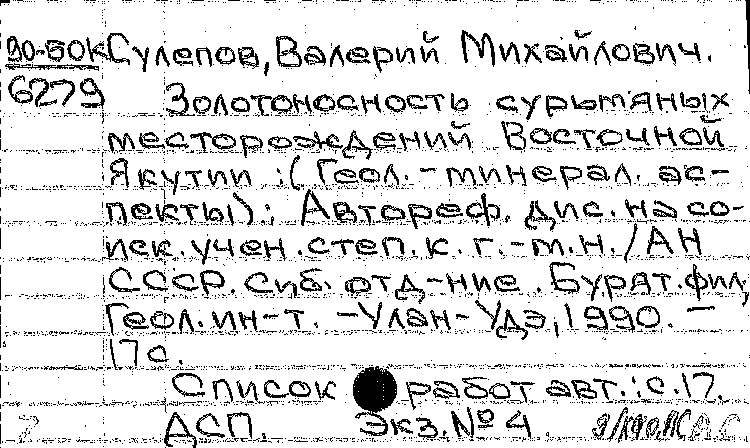 90-50к Сулепов, Валерий Михайлович.
6279 Золотоносность сурьмяных
месторождений Восточной
Якутии : (Геол. - минерал. ас-
пекты) : Автореф. дис. на со-
иск. учен. степ. к. г.-м. н. / АН
СССР. Сиб. отд-ние. Бурят. фил,
Геол. ин-т. - Улан-Удэ, 1990. -
17 с.
Список работ авт.: с. 17.
ДСП. Экз. № 4.